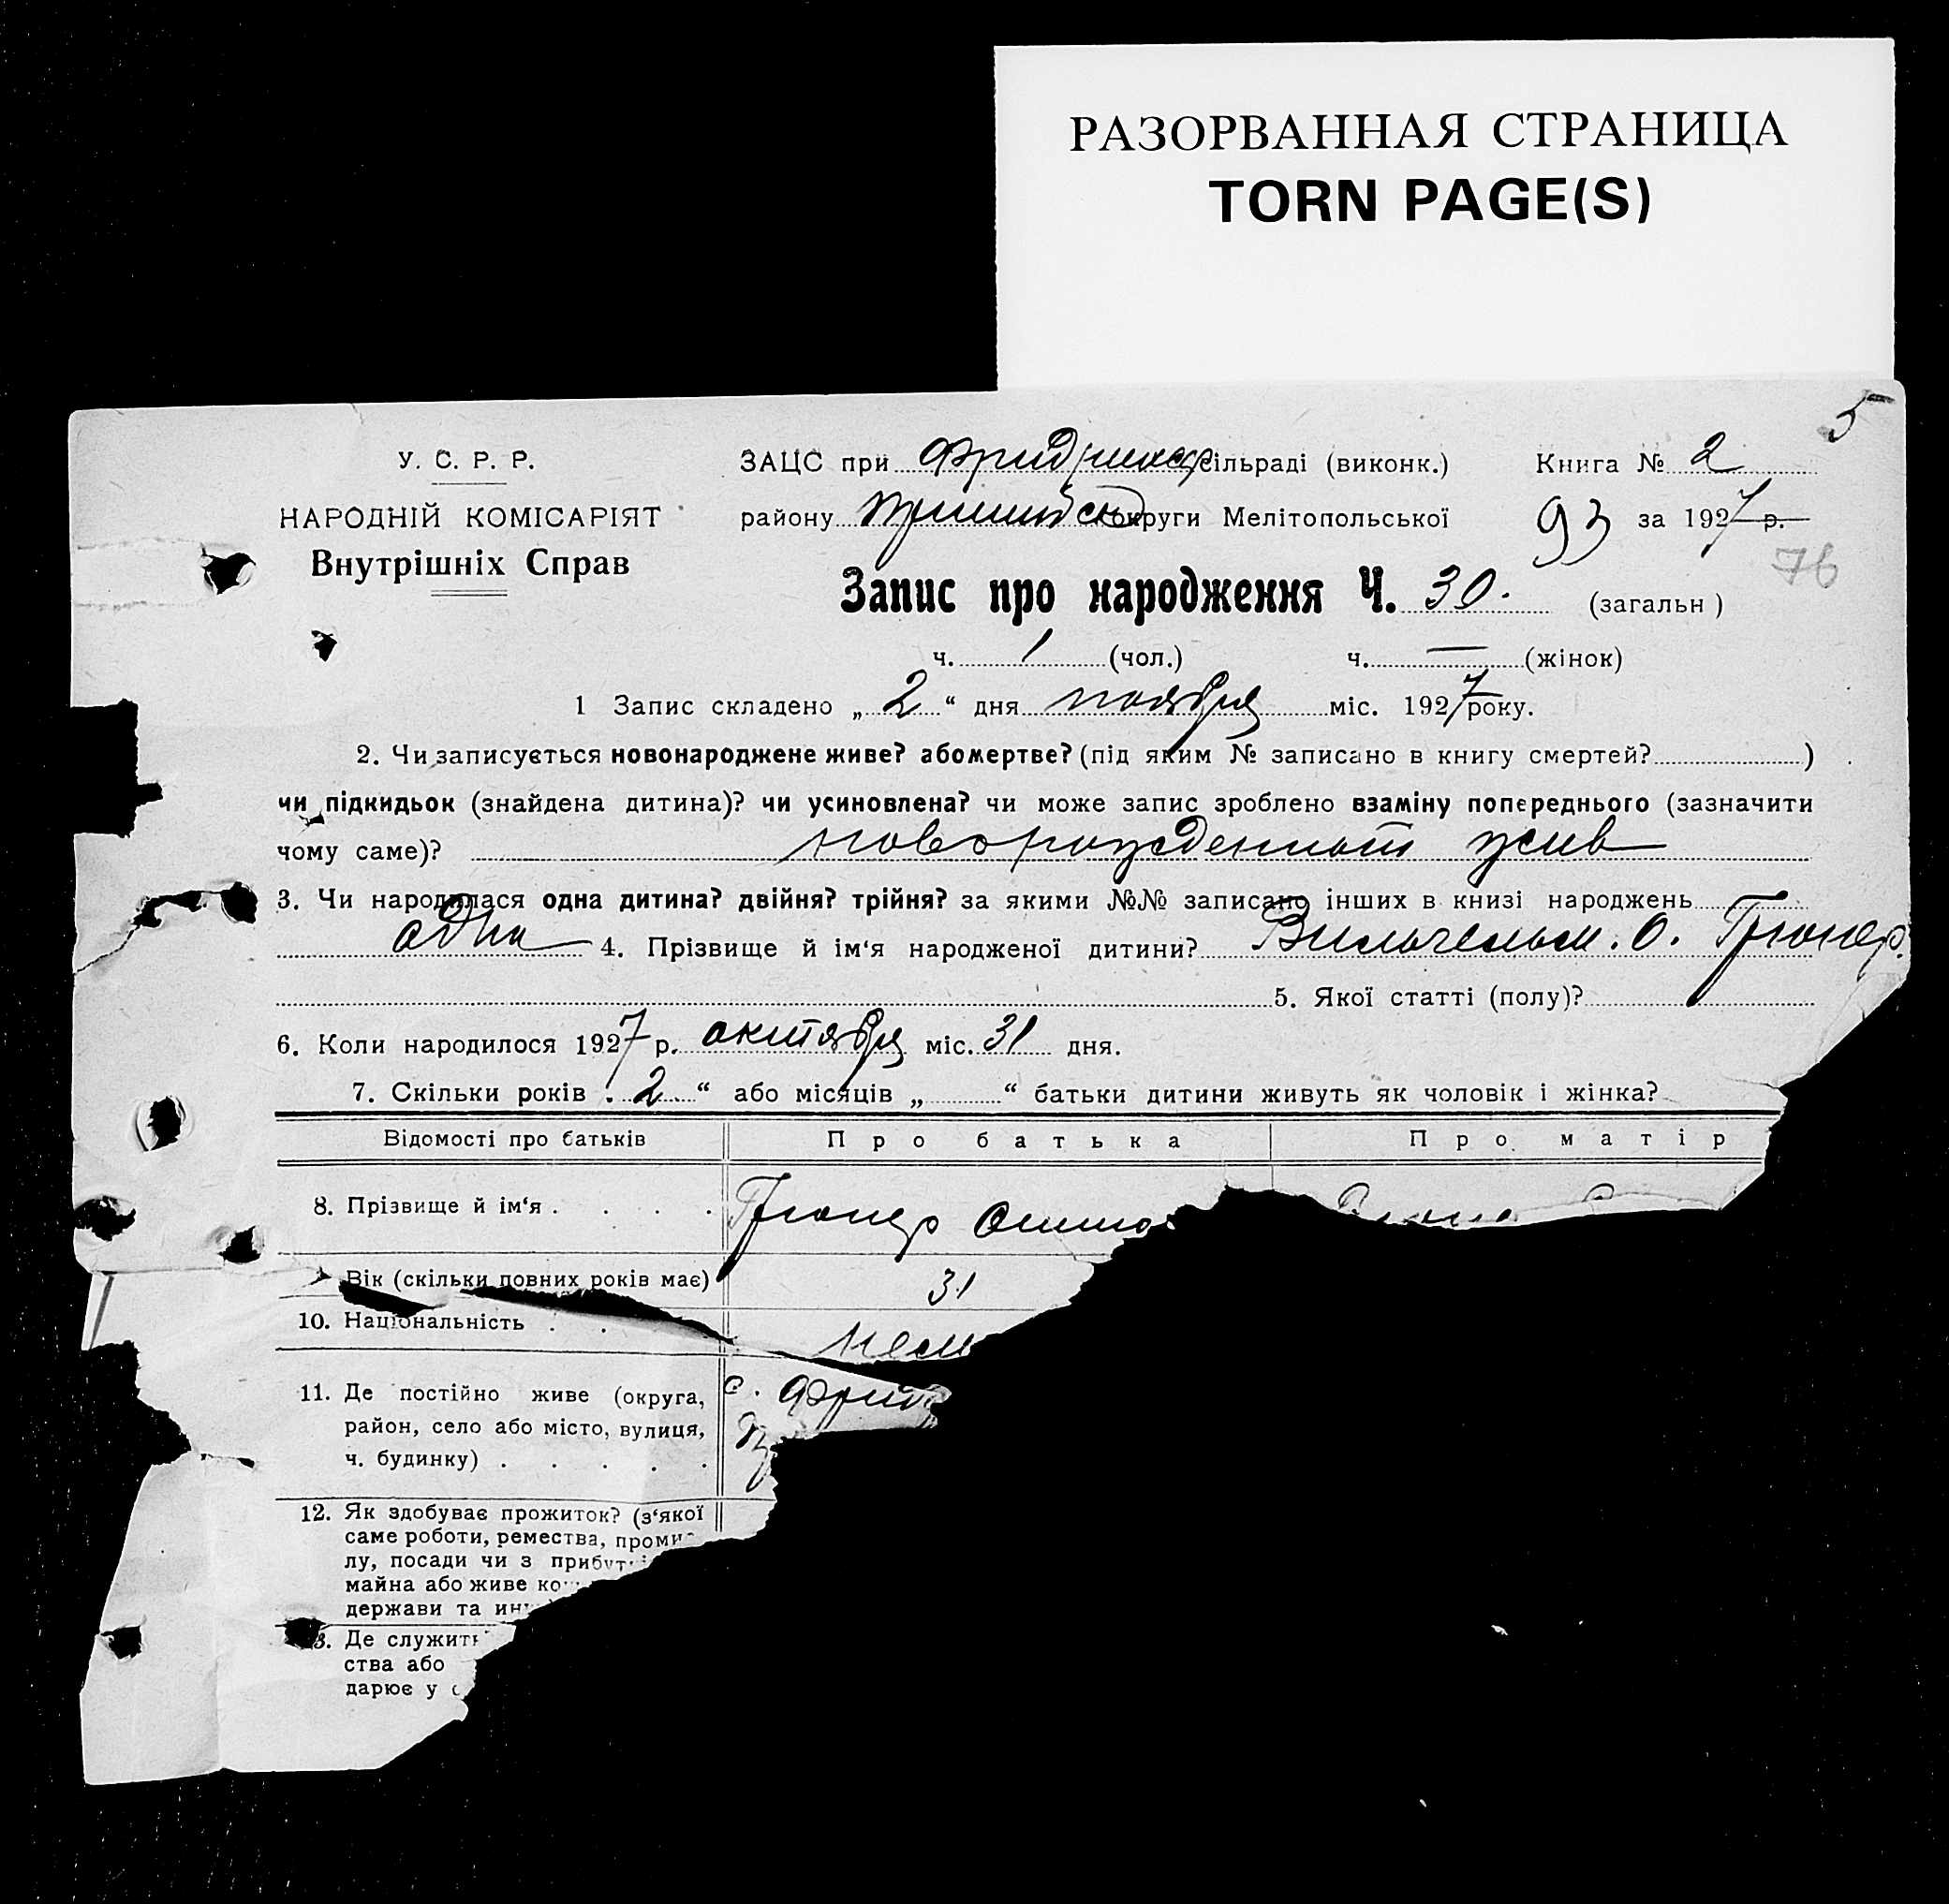 РАЗОРВАННАЯ СТРАНИЦА
TORN PAGE(S)
5
У. С. Р. Р.
НАРОДНІЙ КОМІСАРІЯТ
Внутрішніх Справ
ЗАЦС при сільраді (виконк.) Книга № 2
району округи Мелітопольської 93 за 1927 р.
76
Запис про народження Ч. 30. (загальн)
ч. 1 (чол.) ч. — (жінок)
1 Запис складено „ 2 “ дня ноября міс. 1927 року.
2. Чи записується новонароджене живе? або мертве? (під яким № записано в книгу смертей? )
чи підкидьок (знайдена дитина)? чи усиновлена? чи може запис зроблено взаміну попереднього (зазначити
чому саме)? новорожденный жив
3. Чи народилася одна дитина? двійня? трійня? за якими №№ записано інших в книзі народжень
одна 4. Прізвище й ім‘я народженої дитини? Вильгельм. О. Грюнер.
5. Якої статті (полу)?
6. Коли народилося 1927 р. октября міс. 31 дня.
7. Скільки років . 2 . “ або місяців „ “ батьки дитини живуть як чоловік і жінка?
Відомості про батьків Про батька Про матір
8. Прізвище й ім‘я . . . . Грюнер
Вік (скільки повних років має) 31
10. Національність . . нем
11. Де постійно живе (округа, с. Фрид
район, село або місто, вулиця,
ч. будинку) . . . . .
12. Як здобуває прожиток? (з‘якої
саме роботи, ремества, проми
лу, посади чи з прибут
майна або живе ко
держави та ин
3. Де служить
ства або
дарює у с